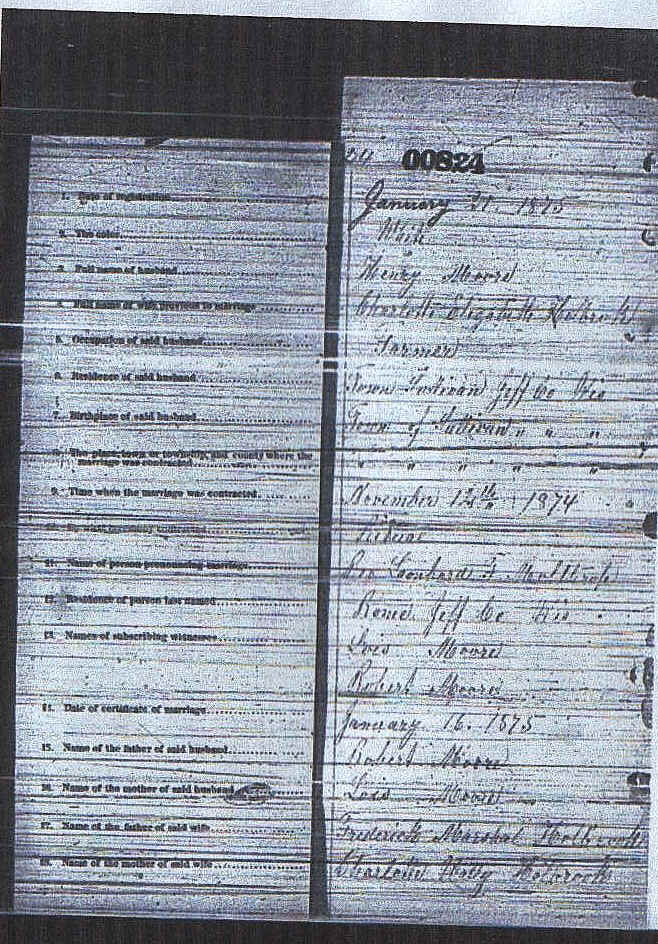 00824
1. Date of registration January 21. 1875
2. The color
3. Full name of husband Henry Moore
4. Full name of wife previous to marriage Charlotte Elizabeth Holbrook
5. Occupation of said husband Farmer
6. Residence of said husband Town Sullivan Jeff Co Wis
7. Birthplace of said husband Town of Sullivan " " "
8. The place, town or township, and county where the
marriage was contracted " " " " "
9. Time when the marriage was contracted November 12th 1874
10. By what ceremony contracted
11. Name of person pronouncing marriage
12. Residence of person last named Rome Jeff Co Wis
13. Names of subscribing witnesses Lois Moore
Robert Moore
14. Date of certificate of marriage January 16. 1875
15. Name of the father of said husband Robert Moore
16. Name of the mother of said husband Lois Moore
17. Name of the father of said wife Frederick Marshal Holbrook
18. Name of the mother of said wife Charlotte Holbrook